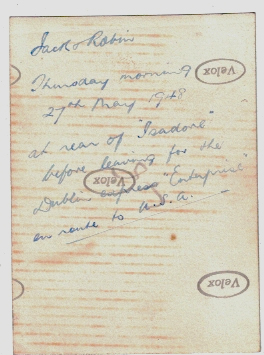 Jack & Robin
Thursday morning
Velox
27th May 1948
at rear of "Isadore"
before leaving for the
Velox
Dublin express "Enterprise"
en route to U.S.A.
Velox